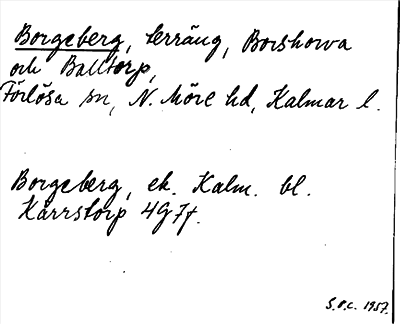 Borgeberg, terräng, Borshorva
och Balltorp,
Förlösa sn, N. Möre hd, Kalmar l.
Borgeberg, ek. Kalm. bl.
Karrstorp 4G7f.
S.O.C. 1957.